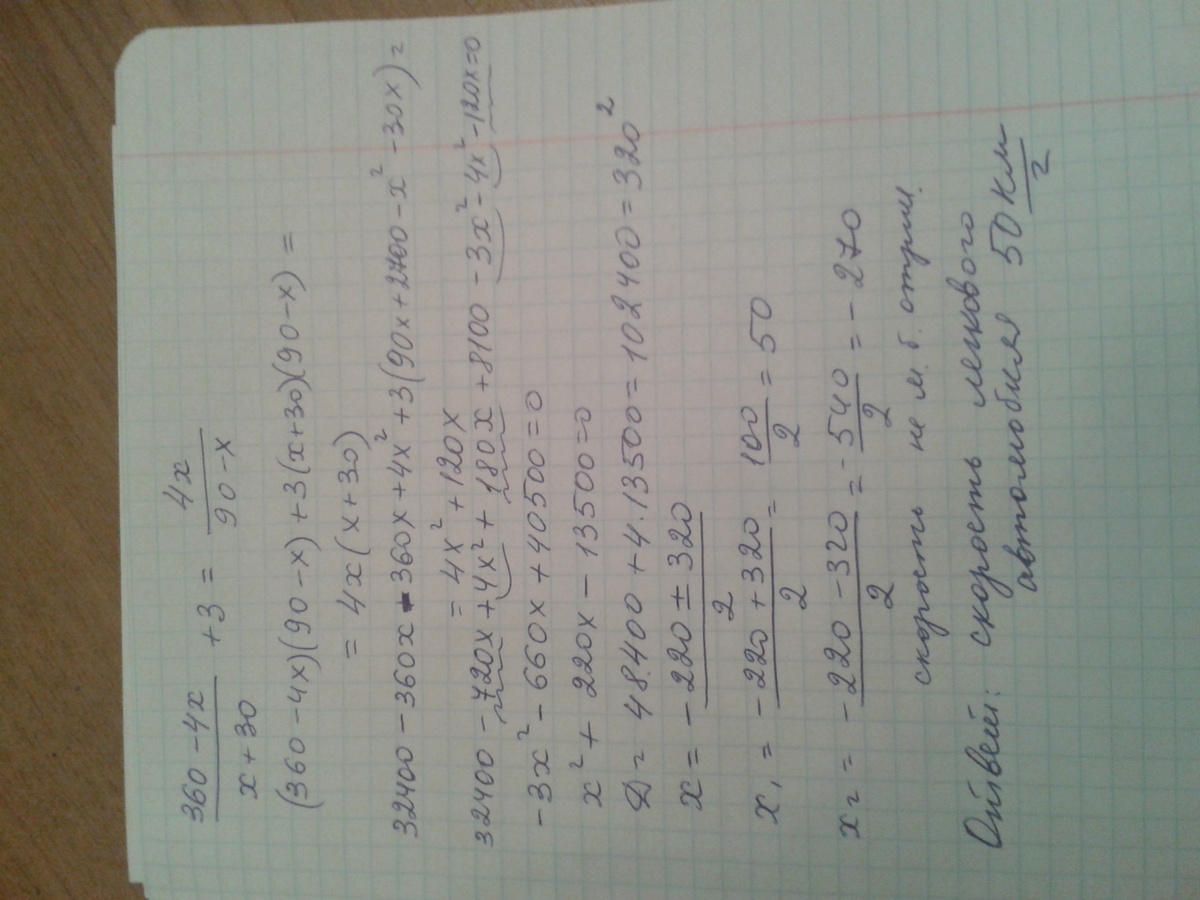 360 - 4x / x + 30 + 3 = 4x / 90 - x
(360 - 4x)(90 - x) + 3(x+30)(90 - x) =
= 4x(x+30)
32400 - 360x - 360x + 4x² + 3(90x + 2700 - x² - 30x) =
= 4x² + 120x
32400 - 720x + 4x² + 180x + 8100 - 3x² - 4x² - 120x = 0
-3x² - 660x + 40500 = 0
x² + 220x - 13500 = 0
D = 48400 + 4·13500 = 102400 = 320²
x = -220 ± 320 / 2
x₁ = -220 + 320 / 2 = 100 / 2 = 50
x₂ = -220 - 320 / 2 = -540 / 2 = -270
скорость не м.б. отриц.
Ответ: скорость легкового
автомобиля 50 км/г